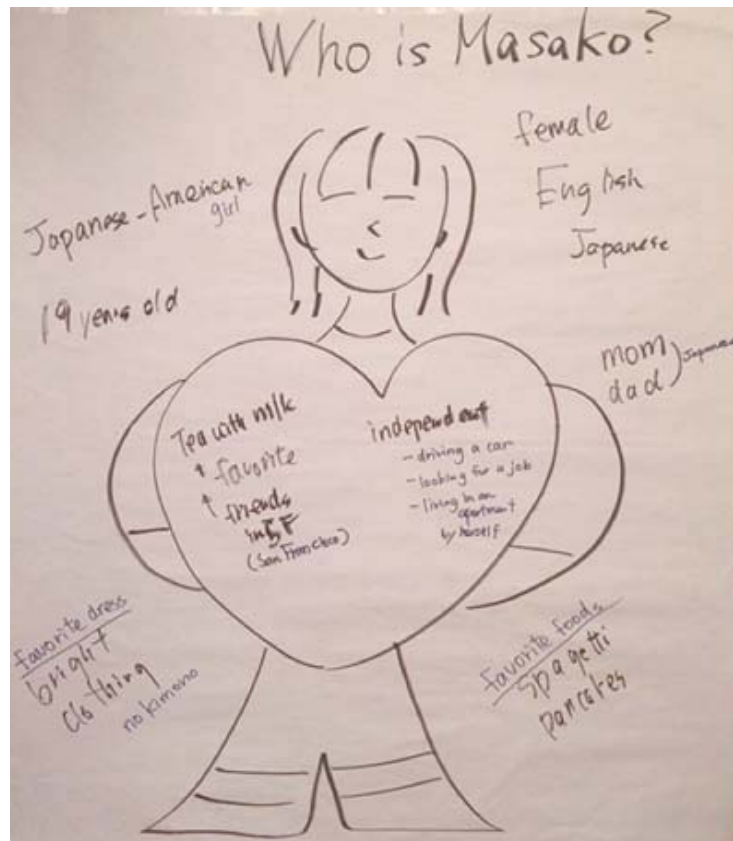 Who is Masako?
Japanese-American
girl
19 years old
female
English
Japanese
mom
dad
Japanese
Tea with milk
favorite
friends
in SF
(San Francisco)
independent
- driving a car
- looking for a job
- living in an
apartment
by herself
favorite dress
bright
clothing
no kimono
favorite foods
spagetti
pancakes